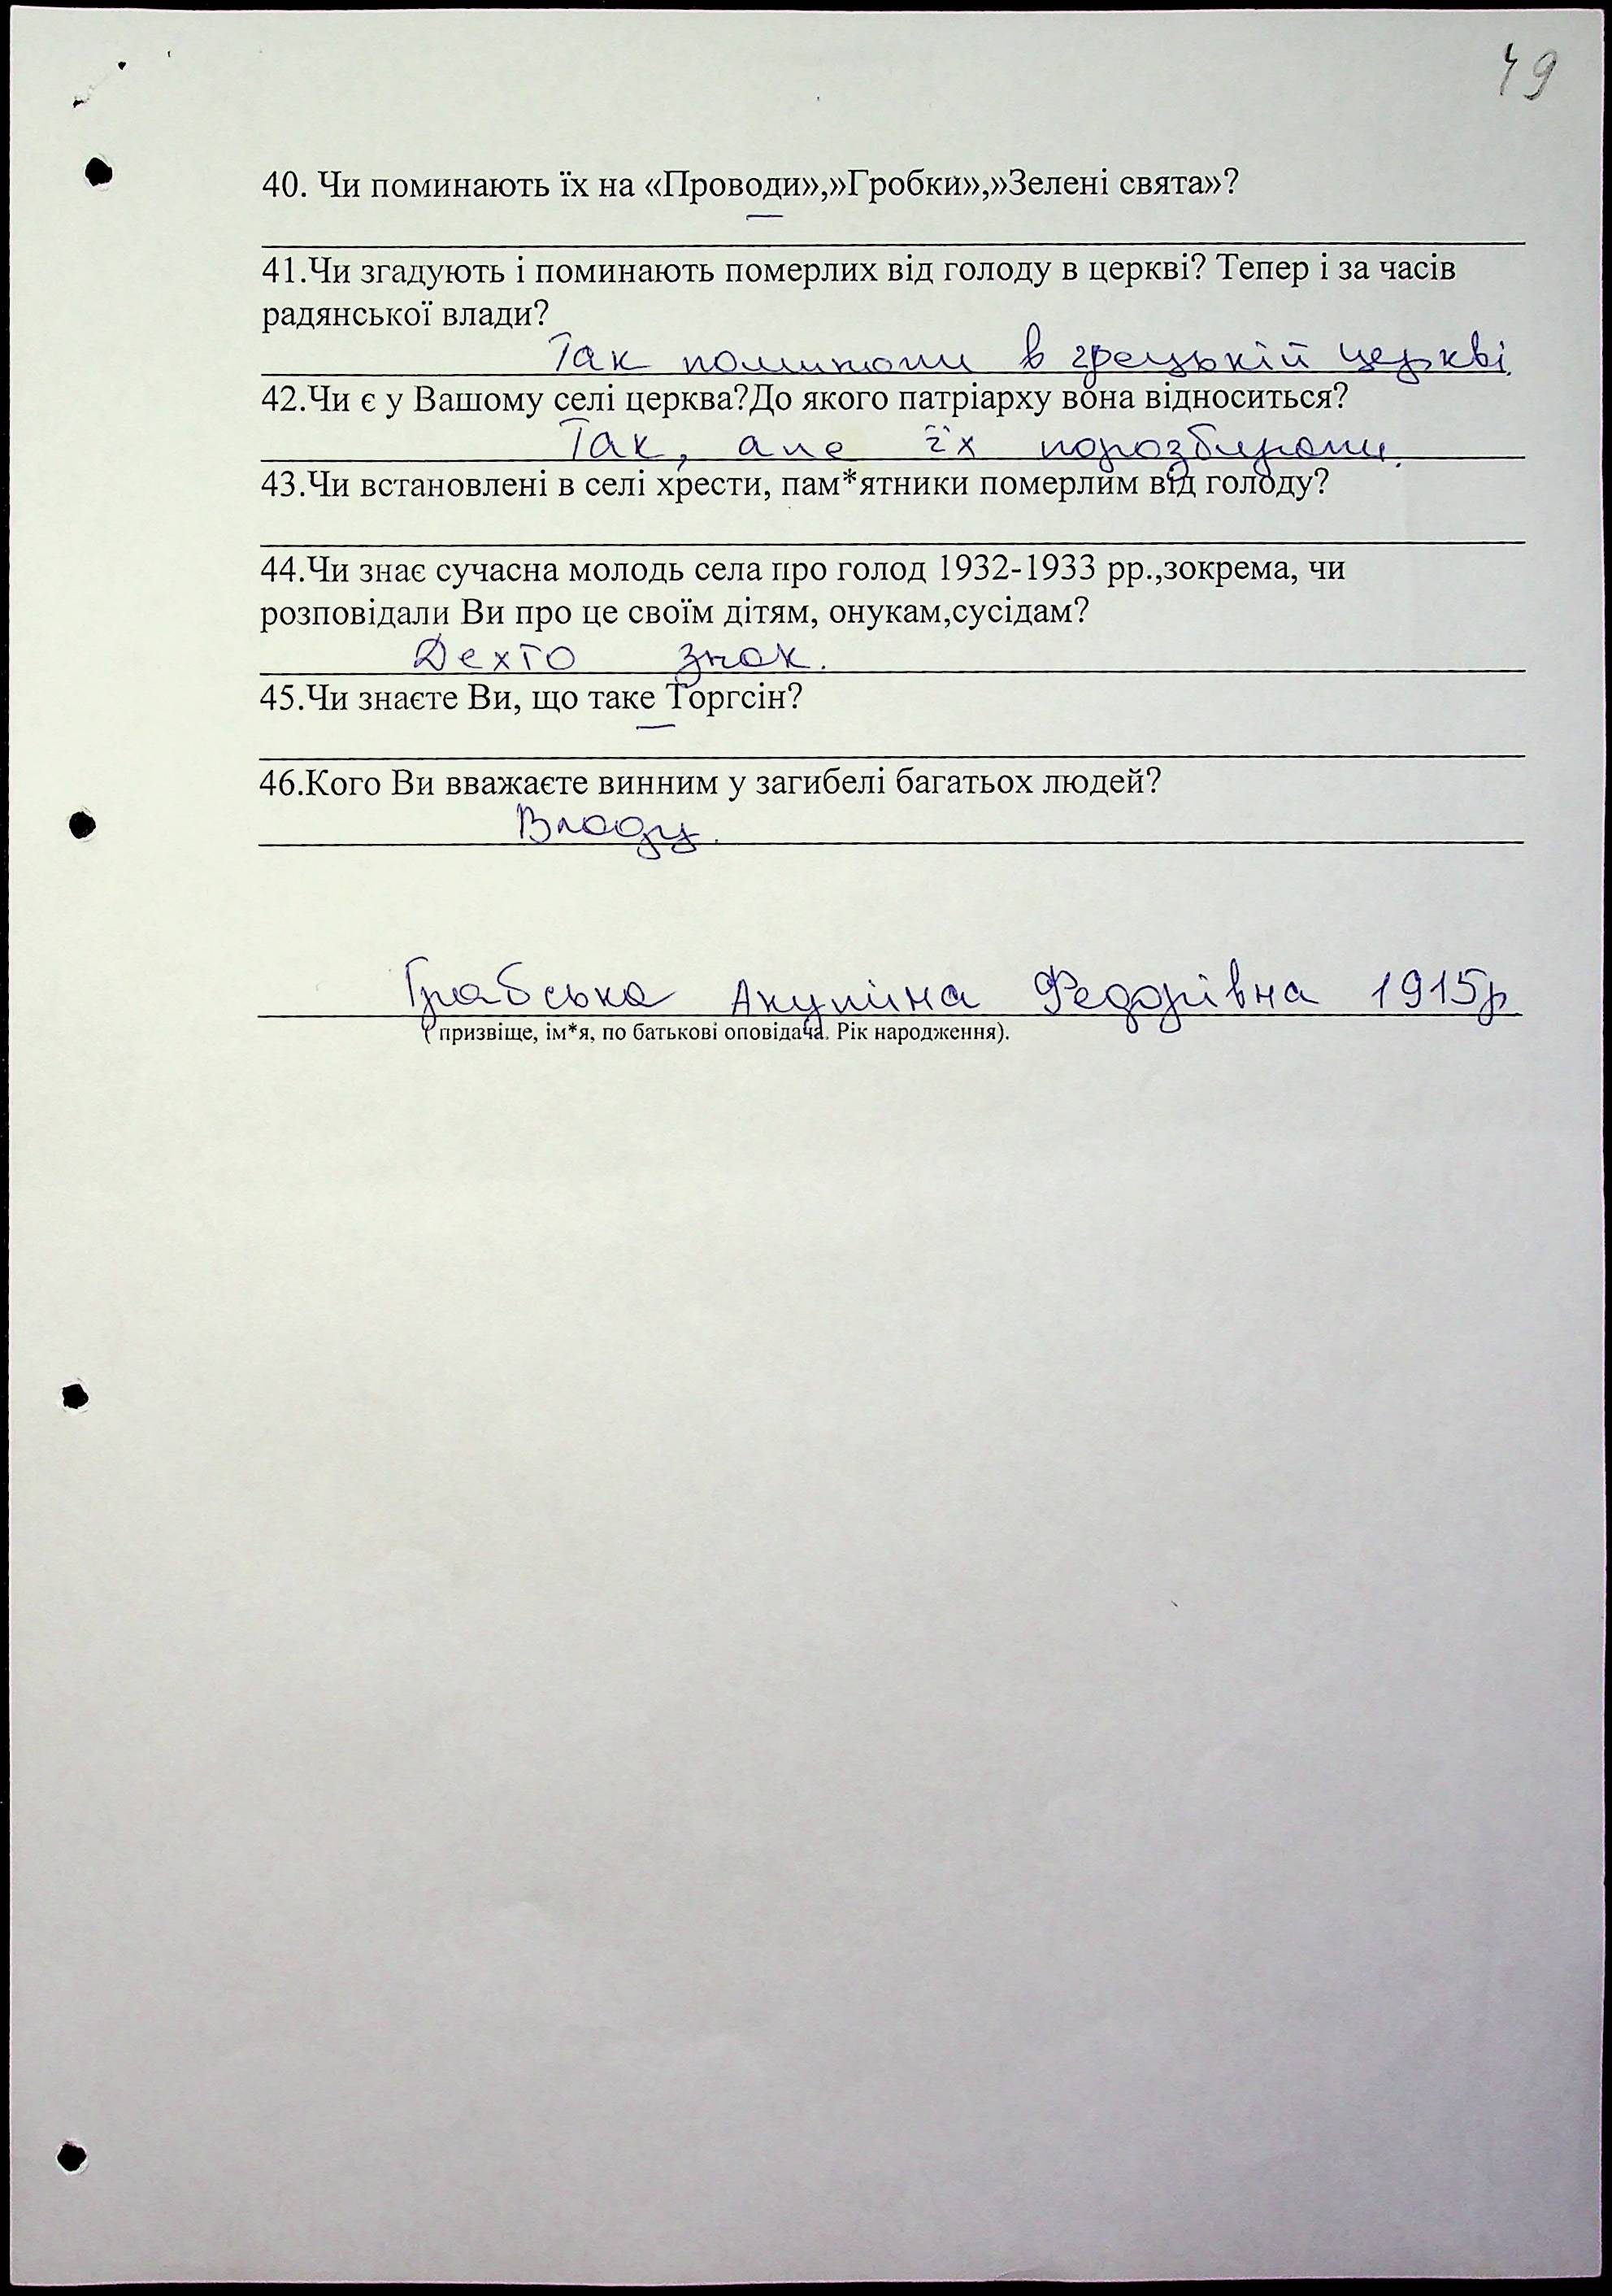 49
40. Чи поминають їх на «Проводи»,»Гробки»,»Зелені свята»?
—
41.Чи згадують і поминають померлих від голоду в церкві? Тепер і за часів
радянської влади?
Так поминали в грецькій церкві.
42.Чи є у Вашому селі церква?До якого патріарху вона відноситься?
Так, але їх порозбирали.
43.Чи встановлені в селі хрести, пам*ятники померлим від голоду?
44.Чи знає сучасна молодь села про голод 1932-1933 рр.,зокрема, чи
розповідали Ви про це своїм дітям, онукам,сусідам?
Дехто знає.
45.Чи знаєте Ви, що таке Торгсін?
—
46.Кого Ви вважаєте винним у загибелі багатьох людей?
Владу.
Грабська Акуліна Федорівна 1915р
( призвіще, ім*я, по батькові оповідача. Рік народження).